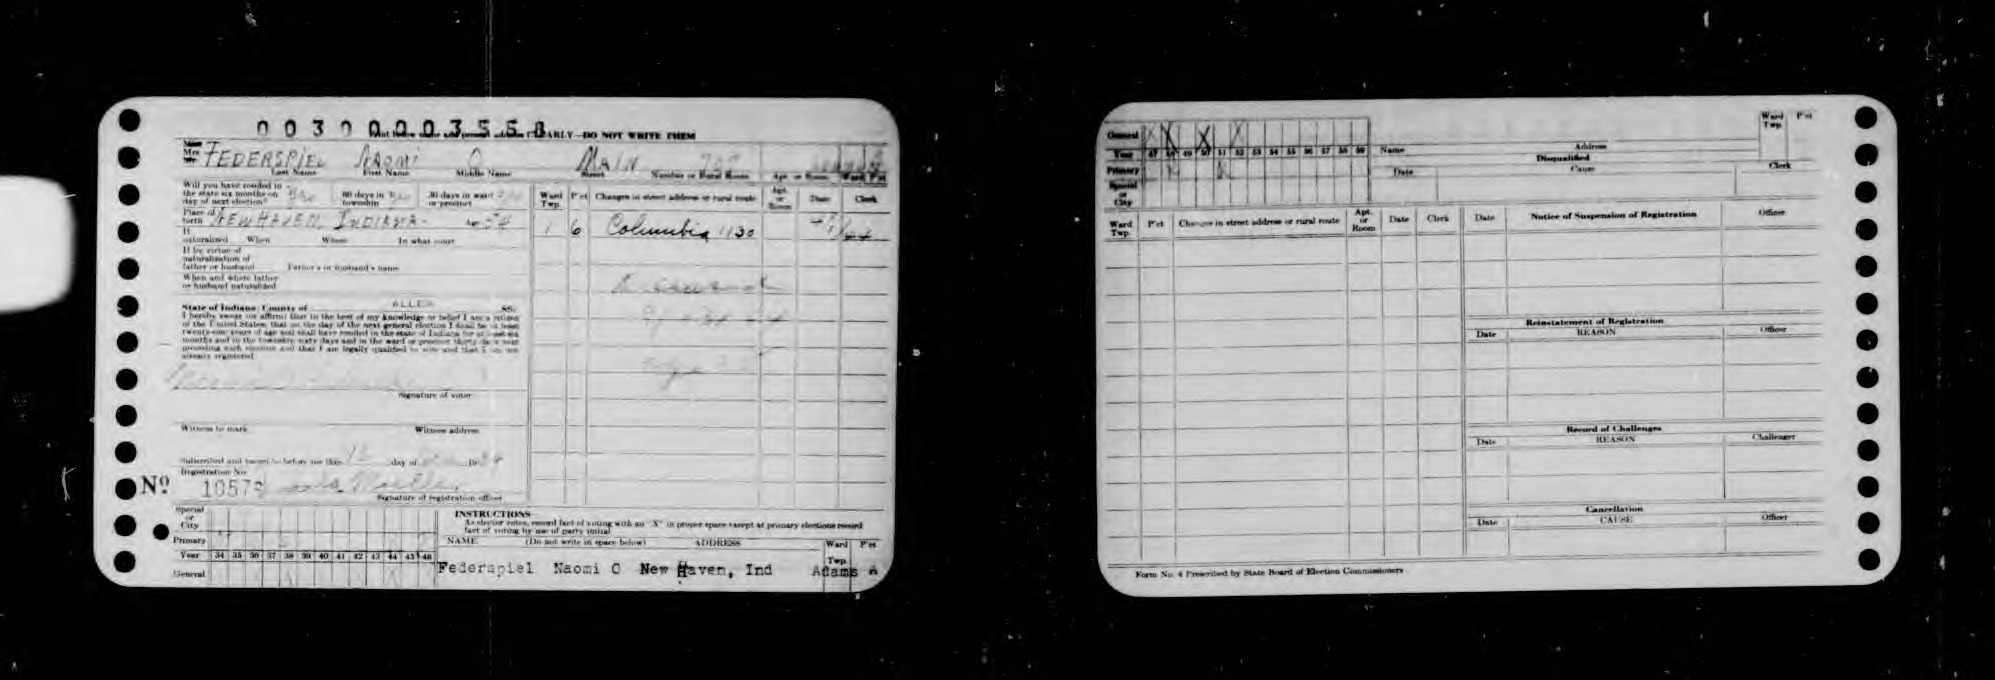 00300003550
Print below name and present address CLEARLY—DO NOT WRITE THEM
Mrs. FEDERSPIEL NAOMI O MAIN 707
Last Name First Name Middle Name Street Number or Rural Route Apt. or Room Ward Pct
Will you have resided in
the state six months on
day of next election?
60 days in
township
30 days in ward
or precinct
Place of
birth NEW HAVEN, INDIANA Age 54
If
naturalized When Where In what court
If by virtue of
naturalization of
father or husband Father's or husband's name
When and where father
or husband naturalized
State of Indiana, County of ALLEN SS:
I hereby swear (or affirm) that to the best of my knowledge or belief I am a citizen
of the United States; that on the day of the next general election I shall be at least
twenty-one years of age and shall have resided in the state of Indiana for at least six
months and in the township sixty days and in the ward or precinct thirty days next
preceding such election and that I am legally qualified to vote and that I am not
already registered
Signature of voter
Witness to mark Witness address
Subscribed and sworn to before me this day of 19
Registration No.
No 10579
Signature of registration officer
Ward Twp. P'ct Changes in street address or rural route Apt. or Room Date Clerk
1 6 Columbia 1130
Special
or
City
Primary
Year 34 35 36 37 38 39 40 41 42 43 44 45 46
General
INSTRUCTIONS
As elector votes, record fact of voting with an "X" in proper space except at primary elections record
fact of voting by use of party initial
NAME (Do not write in space below) ADDRESS Ward Twp. P'ct
Federspiel Naomi O New Haven, Ind Adams A
General X X X X
Year 47 48 49 50 51 52 53 54 55 56 57 58 59
Primary
Special
or
City
Ward Twp. P'ct
Name Address
Disqualified
Date Cause Clerk
Ward Twp. P'ct Changes in street address or rural route Apt. or Room Date Clerk
Date Notice of Suspension of Registration Officer
Reinstatement of Registration
Date REASON Officer
Record of Challenges
Date REASON Challenger
Cancellation
Date CAUSE Officer
Form No. 4 Prescribed by State Board of Election Commissioners